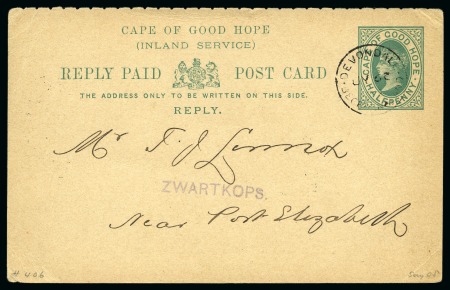 CAPE OF GOOD HOPE
(INLAND SERVICE)
REPLY PAID POST CARD
THE ADDRESS ONLY TO BE WRITTEN ON THIS SIDE.
REPLY.
CAPE OF GOOD HOPE
HALF PENNY
DEVONDALE
Mr T. J. Lennox
ZWARTKOPS.
Near Port Elizabeth
# 406